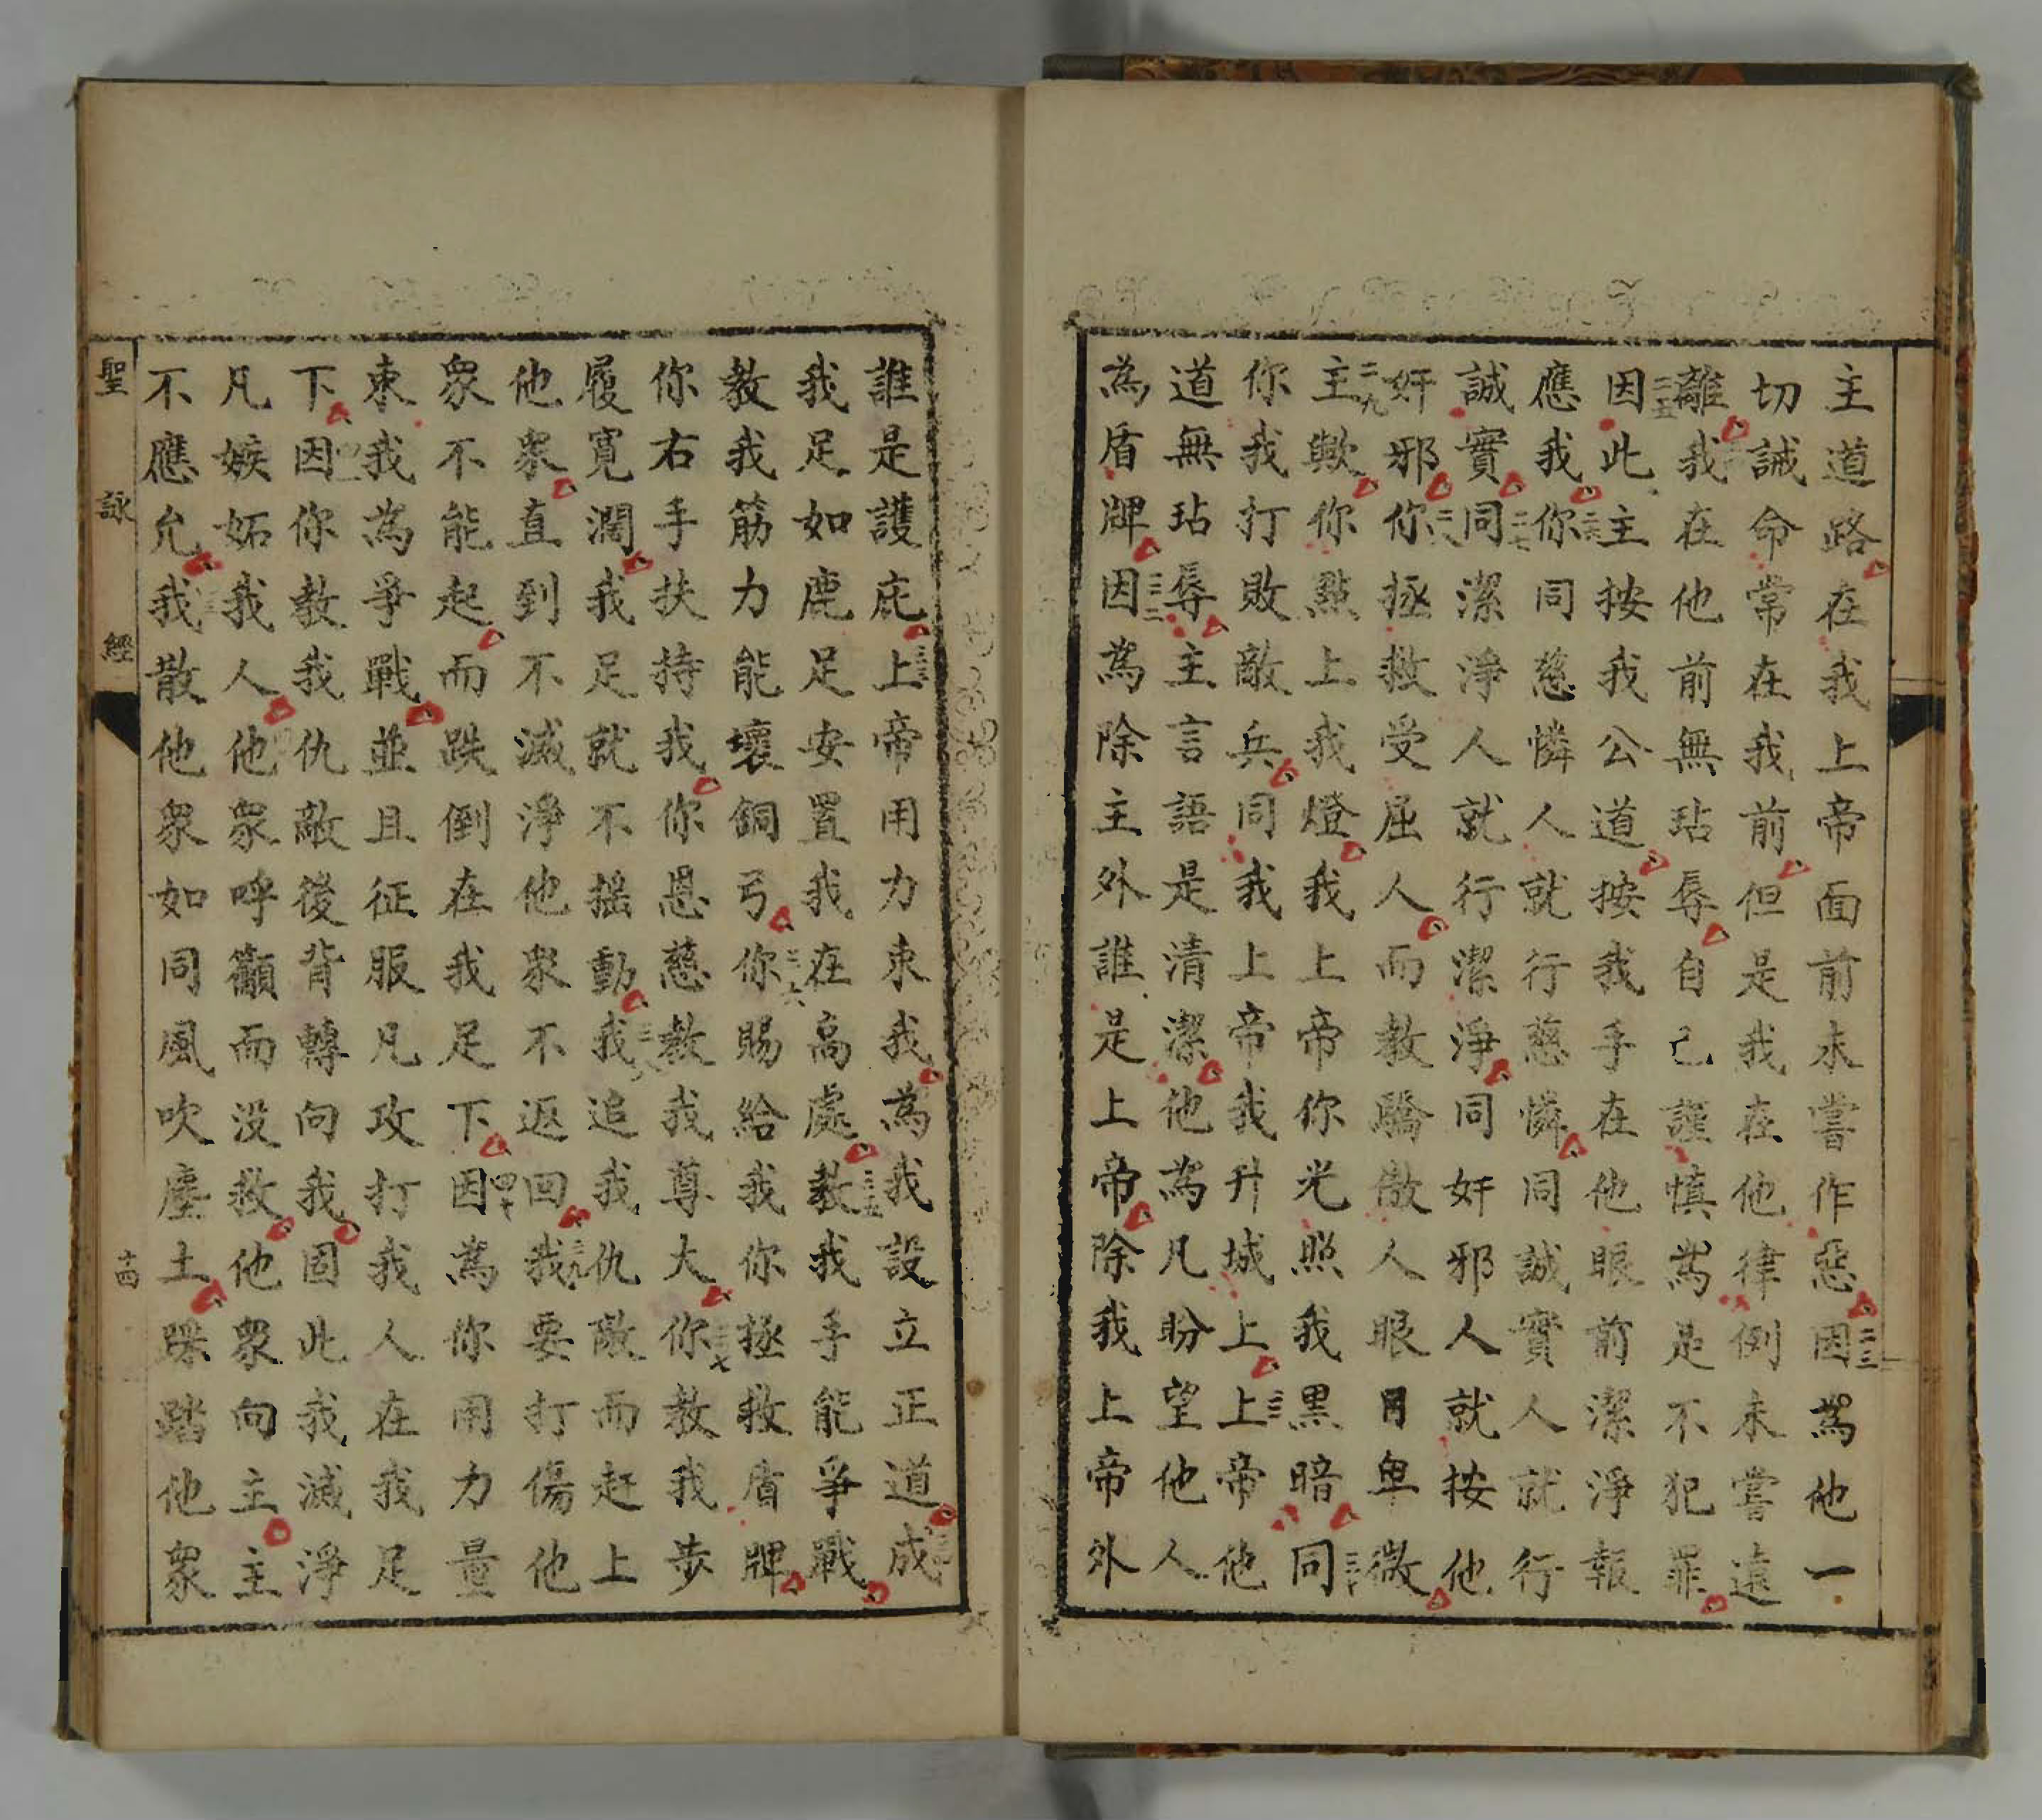 主道路在我上帝面前未嘗作惡二三因為他一
切誡命常在我前但是我在他律例未嘗遠
離我在他前無玷辱自己謹慎為是不犯罪
二五因此主按我公道按我手在他眼前潔淨報
應我二六你同慈憐人就行慈憐同誠實人就行
誠實二七同潔淨人就行潔淨同奸邪人就按他
奸邪二八你拯救受屈人而教驕傲人眼目卑微
二九主歟你點上我燈我上帝你光照我黑暗三十同
你我打敗敵兵同我上帝我升城上三一上帝他
道無玷辱主言語是清潔他為凡盼望他人
為盾牌三二因為除主外誰是上帝除我上帝外
誰是護庇三三上帝用力束我為我設立正道成
我足如鹿足安置我在高處三五教我手能爭戰
教我筋力能壞銅弓三六你賜給我你拯救盾牌
你右手扶持我你恩慈教我尊大三七你教我步
履寬濶我足就不搖動三八我追我仇敵而赶上
他衆直到不滅淨他衆不返回三九我要打傷他
衆不能起而跌倒在我足下四十因為你用力量
束我為爭戰並且征服凡攻打我人在我足
下因你教我仇敵後背轉向我固此我滅淨
凡嫉妬我人他衆呼籲而没救他衆向主主
不應允我散他衆如同風吹塵土踩踏他衆
聖詠經
十四